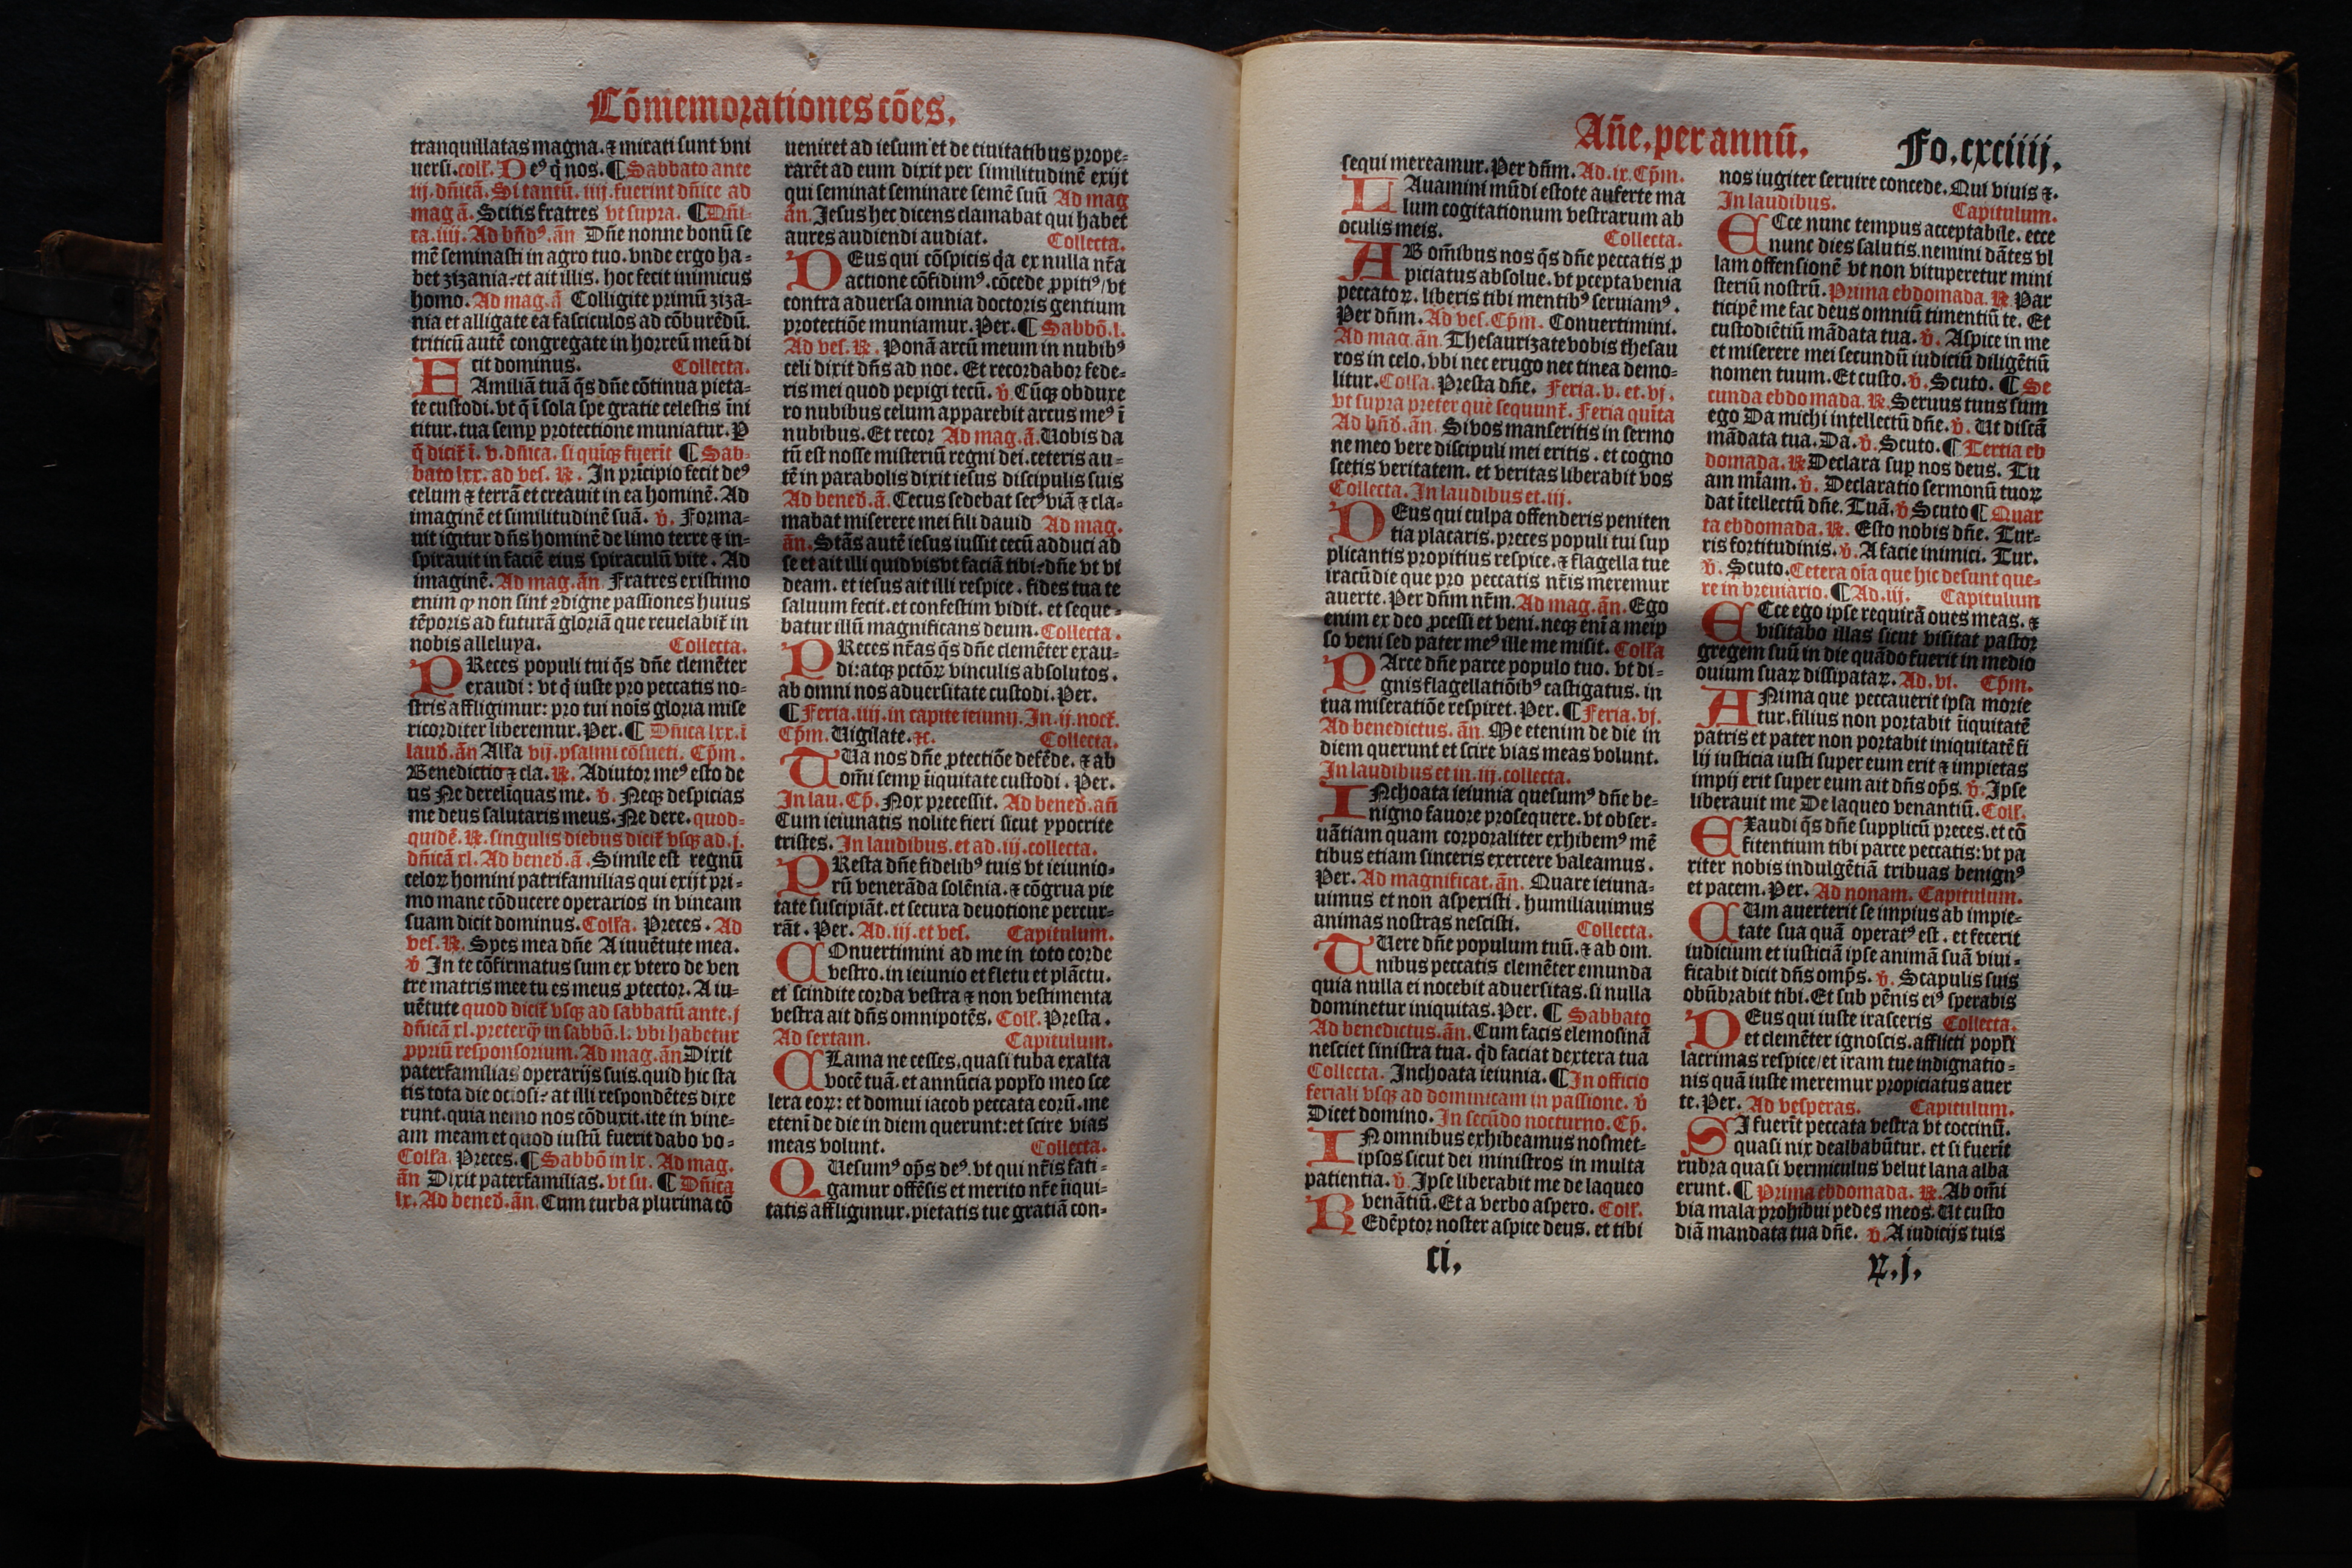 Cōmemorationes cōes.
tranquillatas magna. ⁊ mirati sunt vni
uersi. coll̃. Deꝰ q̄ nos. ¶ Sabbato ante
iij. dñicā. Si tantū. iiij. fuerint dñice ad
mag ā. Scitis fratres vt supra. ¶ Dñi-
ca. iiij. Ad bñdꝰ. ān Dñe nonne bonū se
mē seminasti in agro tuo. vnde ergo ha-
bet zizania? et ait illis. hoc fecit inimicus
homo. Ad mag. ā Colligite primū ziza-
nia et alligate ea fasciculos ad cōburēdū.
triticū autē congregate in horreū meū di
cit dominus. Collecta.
FAmiliā tuā q̄s dñe cōtinua pieta-
te custodi. vt q̄ ī sola spe gratie celestis īni
titur. tua semꝑ protectione muniatur. P
q̄ dicit̃ ī. v. dñica. si quīqꝫ fuerīt ¶ Sab-
bato lxx. ad ves. ℟. In prīcipio fecit deꝰ
celum ⁊ terrā et creauit in ea hominē. Ad
imaginē et similitudinē suā. ℣. Forma-
uit igitur dñs hominē de limo terre ⁊ in-
spirauit in faciē eius spiraculū vite. Ad
imaginē. Ad mag. ān. Fratres existimo
enim ꝙ non sint ꝯdigne passiones huius
tēporis ad futurā gloriā que reuelabit̃ in
nobis alleluya. Collecta.
PReces populi tui q̄s dñe clemēter
exaudi: vt q̄ iuste pro peccatis no-
stris affligimur: pro tui noīs gloria mise
ricorditer liberemur. Per. ¶ Dñica lxx. ī
laud. ān Alľa vij. psalmi cōsueti. Cpm̄.
Benedictio ⁊ cla. ℟. Adiutor meꝰ esto de
us Ne derelīquas me. ℣. Neqꝫ despicias
me deus salutaris meus. Ne dere. quod-
quidē. ℟. singulis diebus dicit̃ vsqꝫ ad. j.
dñicā xl. Ad bened. ā. Simile est regnū
celoꝝ homini patrifamilias qui exijt pri-
mo mane cōducere operarios in vineam
suam dicit dominus. Colľa. Preces. Ad
ves. ℟. Spes mea dñe A iuuētute mea.
℣ In te cōfirmatus sum ex vtero de ven
tre matris mee tu es meus ꝓtector. A iu-
uētute quod dicit̃ vsqꝫ ad sabbatū ante. j
dñicā xl. preterq̄ꝫ in sabbō. l. vbi habetur
ꝓpriū responsorium. Ad mag. ān Dixit
paterfamilias operarijs suis. quid hic sta
tis tota die ociosi? at illi respondētes dixe
runt. quia nemo nos cōduxit. ite in vine-
am meam et quod iustū fuerit dabo vo-
Colľa. Preces. ¶ Sabbō in lx. Ad mag.
ān Dixit paterfamilias. vt su. ¶ Dñica
lx. Ad bened. ān. Cum turba plurima cō
ueniret ad iesum et de ciuitatibus prope-
rarēt ad eum dixit per similitudinē exijt
qui seminat seminare semē suū Ad mag
ān. Jesus hec dicens clamabat qui habet
aures audiendi audiat. Collecta.
DEus qui cōspicis q̄a ex nulla nr̄a
actione cōfidimꝰ. cōcede ꝓpitiꝰ / vt
contra aduersa omnia doctoris gentium
protectiōe muniamur. Per. ¶ Sabbō. l.
Ad ves. ℟. Ponā arcū meum in nubibꝰ
celi dixit dñs ad noe. Et recordabor fede-
ris mei quod pepigi tecū. ℣. Cūqꝫ obduxe
ro nubibus celum apparebit arcus meꝰ ī
nubibus. Et recor Ad mag. ā. Uobis da
tū est nosse misteriū regni dei. ceteris au-
tē in parabolis dixit iesus discipulis suis
Ad bened. ā. Cecus sedebat secꝰ viā ⁊ cla-
mabat miserere mei fili dauid Ad mag.
ān. Stās autē iesus iussit cecū adduci ad
se et ait illi quid vis vt faciā tibi? dñe vt vi
deam. et iesus ait illi respice. fides tua te
saluum fecit. et confestim vidit. et seque-
batur illū magnificans deum. Collecta.
PReces nr̄as q̄s dñe clemēter exau-
di: atqꝫ pctōꝝ vinculis absolutos.
ab omni nos aduersitate custodi. Per.
¶ Feria. iiij. in capite ieiunij. In. ij. noct̃.
Cpm̄. Uigilate. ⁊c. Collecta.
TUā nos dñe ꝓtectiōe defēde. ⁊ ab
om̄i semꝑ īiquitate custodi. Per.
In lau. Cp̄. Nox precessit. Ad bened. añ
Cum ieiunatis nolite fieri sicut ypocrite
tristes. In laudibus. et ad. iij. collecta.
PResta dñe fidelibꝰ tuis vt ieiunio-
rū venerāda solēnia. ⁊ cōgrua pie
tate suscipiāt. et secura deuotione percur-
rāt. Per. Ad. iij. et ves. Capitulum.
COnuertimini ad me in toto corde
vestro. in ieiunio et fletu et plāctu.
et scindite corda vestra ⁊ non vestimenta
vestra ait dñs omnipotēs. Coll̃. Presta.
Ad sextam. Capitulum.
CLama ne cesses. quasi tuba exalta
vocē tuā. et annūcia popľo meo sce
lera eoꝝ: et domui iacob peccata eorū. me
etenī de die in diem querunt: et scire vias
meas volunt. Collecta.
QUesumꝰ op̄s deꝰ. vt qui nr̄is fati-
gamur offēsis et merito nr̄e īiqui-
tatis affligimur. pietatis tue gratiā con-
Añe. per annū. Fo. cxciiij.
sequi mereamur. Per dñm. Ad. ix. Cpm̄.
LAuamini mūdi estote auferte ma
lum cogitationum vestrarum ab
oculis meis. Collecta.
AB om̄ibus nos q̄s dñe peccatis ꝓ
piciatus absolue. vt ꝑcepta venia
peccatoꝝ. liberis tibi mentibꝰ seruiamꝰ.
Per dñm. Ad ves. Cpm̄. Conuertimini.
Ad mag. ān. Thesaurizate vobis thesau
ros in celo. vbi nec erugo nec tinea demo-
litur. Colľa. Presta dñe. Feria. v. et. vj.
vt supra preter que sequunt̃. Feria quīta
Ad bñd. ān. Si vos manseritis in sermo
ne meo vere discipuli mei eritis. et cogno
scetis veritatem. et veritas liberabit vos
Collecta. In laudibus et. iij.
DEus qui culpa offenderis peniten
tia placaris. preces populi tui sup
plicantis propitius respice. ⁊ flagella tue
iracūdie que pro peccatis nr̄is meremur
auerte. Per dñm nr̄m. Ad mag. ān. Ego
enim ex deo ꝓcessi et veni. neqꝫ enī a meip
so veni sed pater meꝰ ille me misit. Colľa
PArce dñe parce populo tuo. vt di-
gnis flagellatiōibꝰ castigatus. in
tua miseratiōe respiret. Per. ¶ Feria. vj.
Ad benedictus. ān. Me etenim de die in
diem querunt et scire vias meas volunt.
In laudibus et in. iij. collecta.
INchoata ieiunia quesumꝰ dñe be-
nigno fauore prosequere. vt obser-
uātiam quam corporaliter exhibemꝰ mē
tibus etiam sinceris exercere valeamus.
Per. Ad magnificat. ān. Quare ieiuna-
uimus et non aspexisti. humiliauimus
animas nostras nescisti. Collecta.
TUere dñe populum tuū. ⁊ ab om.
nibus peccatis clemēter emunda
quia nulla ei nocebit aduersitas. si nulla
dominetur iniquitas. Per. ¶ Sabbato
Ad benedictus. ān. Cum facis elemosinā
nesciet sinistra tua. q̄d faciat dextera tua
Collecta. Inchoata ieiunia. ¶ In officio
feriali vsqꝫ ad dominicam in passione. ℣
Dicet domino. In secūdo nocturno. Cp̄.
IN omnibus exhibeamus nosmet-
ipsos sicut dei ministros in multa
patientia. ℣. Ipse liberabit me de laqueo
venātiū. Et a verbo aspero. Coll̃.
REdēptor noster aspice deus. et tibi
ci.
nos iugiter seruire concede. Qui viuis ⁊.
In laudibus. Capitulum.
ECce nunc tempus acceptabile. ecce
nunc dies salutis. nemini dātes vl
lam offensionē vt non vituperetur mini
steriū nostrū. Prima ebdomada. ℟. Par
ticipē me fac deus omniū timentiū te. Et
custodiētiū mādata tua. ℣. Aspice in me
et miserere mei secundū iudiciū diligētiū
nomen tuum. Et custo. ℣. Scuto. ¶ Se
cunda ebdomada. ℟. Seruus tuus sum
ego Da michi intellectū dñe. ℣. Ut discā
mādata tua. Da. ℣. Scuto. ¶ Tertia eb
domada. ℟ Declara suꝑ nos deus. Tu
am mīam. ℣. Declaratio sermonū tuoꝝ
dat ītellectū dñe. Tuā. ℣ Scuto ¶ Quar
ta ebdomada. ℟. Esto nobis dñe. Tur-
ris fortitudinis. ℣. A facie inimici. Tur.
℣. Scuto. Cetera oīa que hic desunt que-
re in breuiario. ¶ Ad. iij. Capitulum
ECce ego ipse requirā oues meas. ⁊
visitabo illas sicut visitat pastor
gregem suū in die quādo fuerit in medio
ouium suaꝝ dissipataꝝ. Ad. vi. Cpm̄.
ANima que peccauerit ipsa morie
tur. filius non portabit īiquitatē
patris et pater non portabit iniquitatē fi
lij iusticia iusti super eum erit ⁊ impietas
impij erit super eum ait dñs op̄s. ℣. Ipse
liberauit me De laqueo venantiū. Coll̃.
EXaudi q̄s dñe supplicū preces. et cō
fitentium tibi parce peccatis: vt pa
riter nobis indulgētiā tribuas benignꝰ
et pacem. Per. Ad nonam. Capitulum.
CUm auerterit se impius ab impie-
tate sua quā operatꝰ est. et fecerit
iudicium et iusticiā ipse animā suā viui-
ficabit dicit dñs omp̄s. ℣. Scapulis suis
obūbrabit tibi. Et sub pēnis eiꝰ sperabis
DEus qui iuste irasceris Collecta.
et clemēter ignoscis. afflicti popľi
lacrimas respice / et iram tue indignatio-
nis quā iuste meremur propiciatus auer
te. Per. Ad vesperas. Capitulum.
SI fuerīt peccata vestra vt coccinū.
quasi nix dealbabūtur. et si fuerīt
rubra quasi vermiculus velut lana alba
erunt. ¶ Prima ebdomada. ℟. Ab om̄i
via mala prohibui pedes meos. Ut custo
diā mandata tua dñe. ℣. A iudicijs tuis